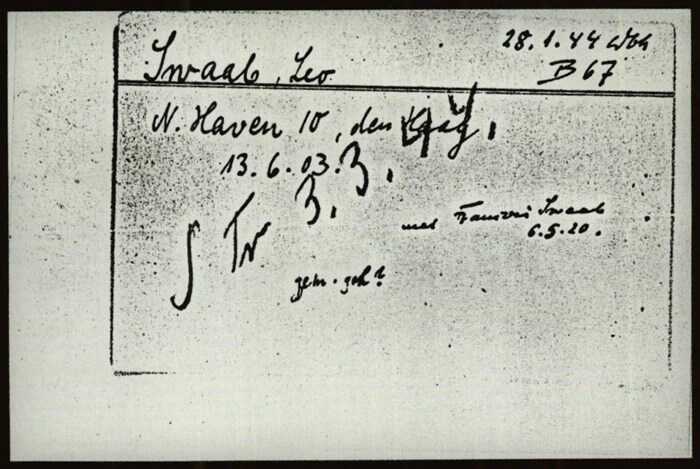 28.1.44 Wbk
Swaab, Leo
B 67
N. Haven 10, den Haag.
13.6.03.
3. 3.
S Tr
met Swaab
6.5.20.
gem. geh?